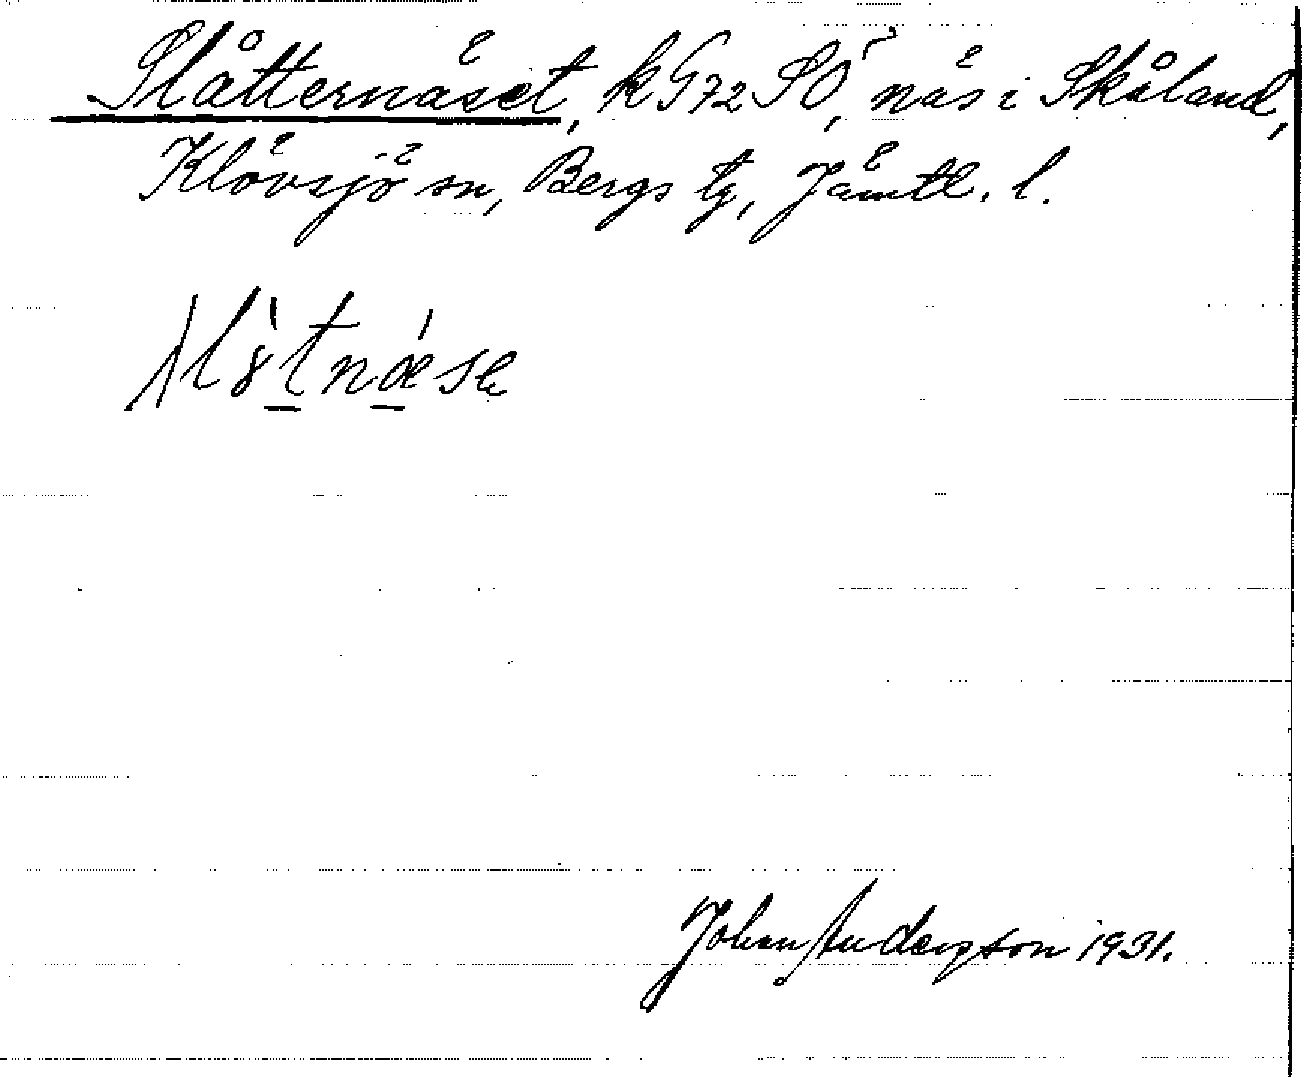 Slåtternäset, kG72SO, näs i Skåland,
Klövsjö sn, Bergs tg, Jämtl. l.
Johan Anderson 1931.